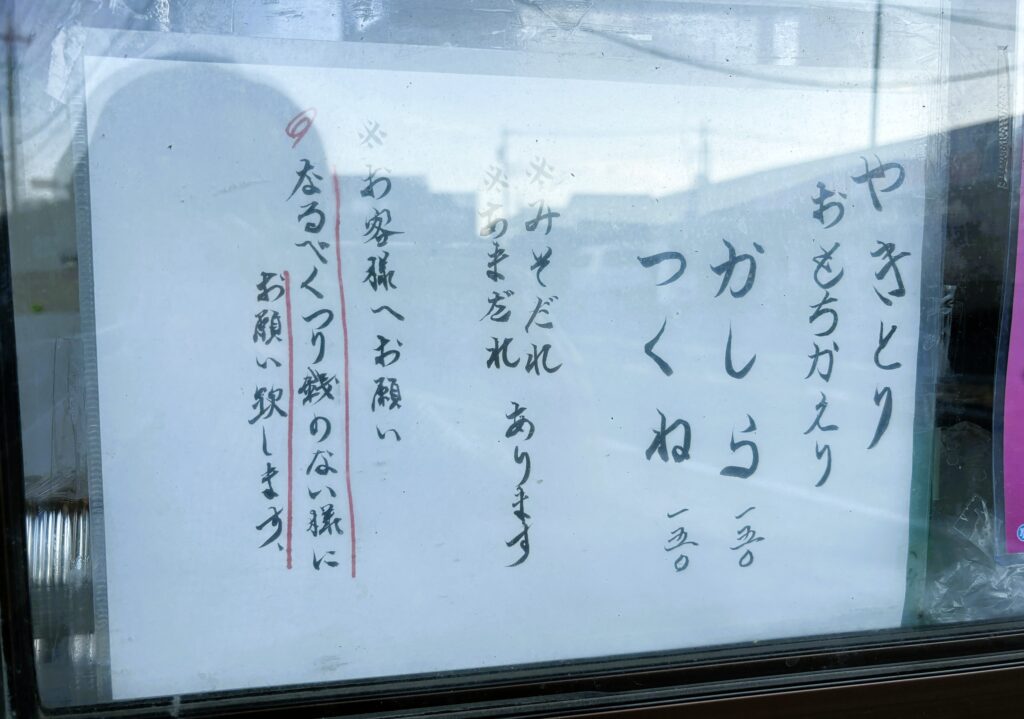 やきとり
おもちかえり
かしら 一五〇
つくね 一五〇
※みそだれ
※あまだれ
あります
※お客様へお願い
なるべくつり銭のない様に
お願い致します、